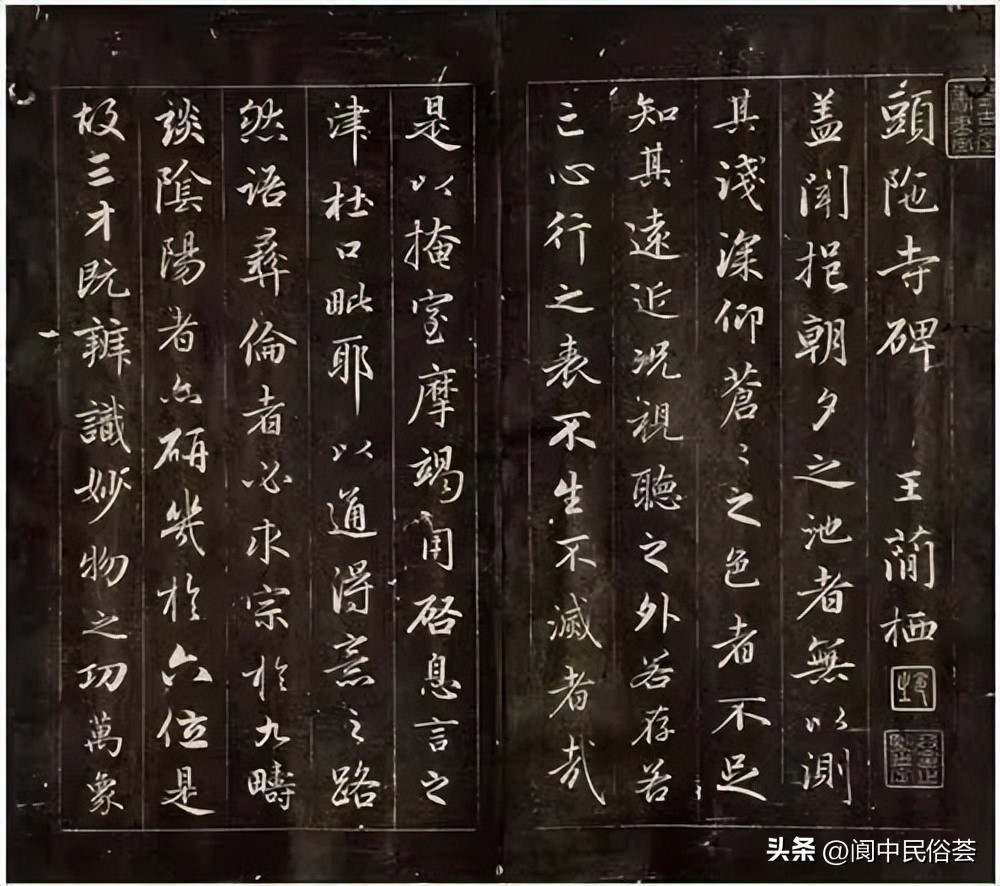 頭陁寺碑 王蕳栖
盖聞挹朝夕之池者無以測
其淺深仰蒼〻之色者不足
知其遠近況視聽之外若存若
亡心行之表不生不滅者哉
是以掩室摩竭用啓息言之
津杜口毗耶以通得意之路
然語彞倫者必求宗於九疇
談陰陽者亦研幾於六位是
故三才既辨識妙物之功萬象
头条 @阆中民俗荟